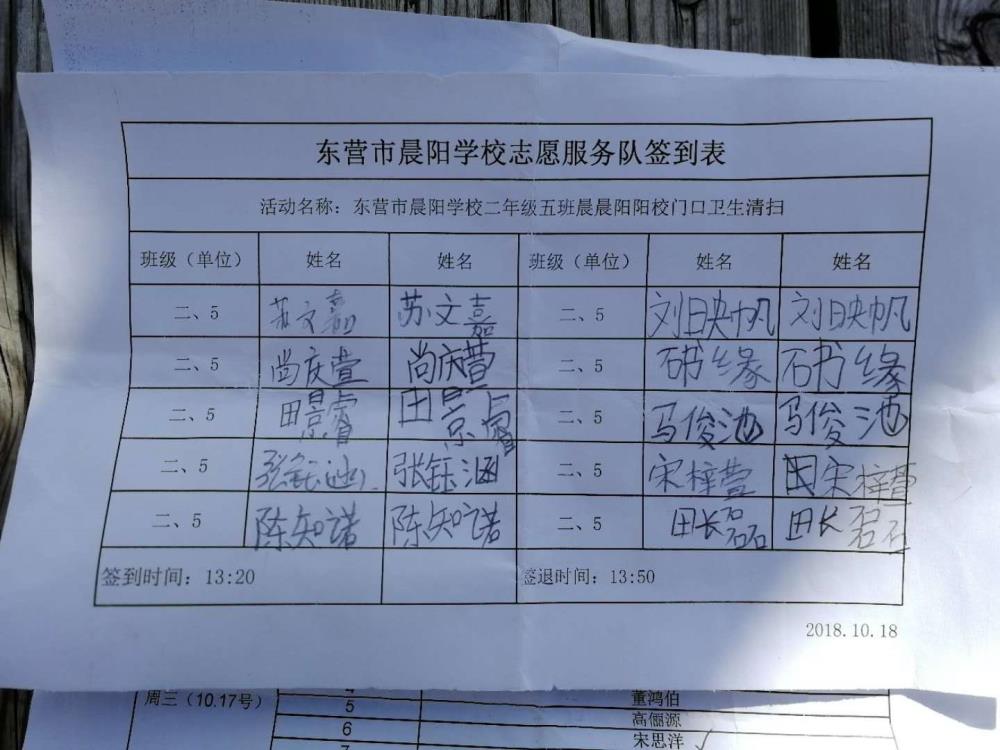 东营市晨阳学校志愿服务队签到表
活动名称：东营市晨阳学校二年级五班晨晨阳阳校门口卫生清扫
班级（单位） 姓名 姓名 班级（单位） 姓名 姓名
二、5 苏文嘉 苏文嘉 二、5 刘映帆 刘映帆
二、5 尚庆萱 尚庆萱 二、5 石书缘 石书缘
二、5 田景睿 田景睿 二、5 马俊池 马俊池
二、5 张钰涵 张钰涵 二、5 宋梓萱 田宋梓萱
二、5 陈知诺 陈知诺 二、5 田长磊 田长磊
签到时间：13:20 签退时间：13:50
2018.10.18
周三（10.17号）
5 董鸿伯
6 高俪源
宋思洋